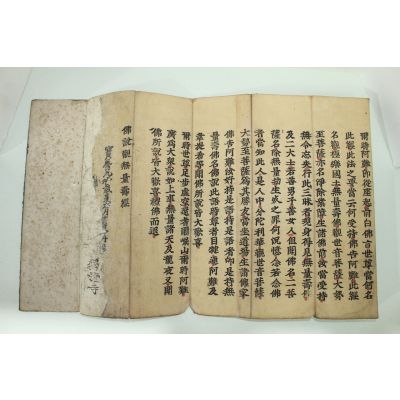 爾時阿難即從座起前白佛言世尊當何名
此經此法之要當云何受持佛告阿難此經
名觀極樂國土無量壽佛觀世音菩薩大勢
至菩薩亦名淨除業障生諸佛前汝當受持
無令忘失行此三昧者現身得見無量壽佛
及二大士若善男子善女人但聞佛名二菩
薩名除無量劫生死之罪何況憶念若念佛
者當知此人是人中分陀利華觀世音菩薩
大勢至菩薩爲其勝友當坐道場生諸佛家
佛告阿難汝好持是語持是語者即是持無
量壽佛名佛說此語時尊者目揵連阿難及
韋提希等聞佛所說皆大歡喜
爾時世尊足步虛空還耆闍崛山爾時阿難
廣爲大衆說如上事無量諸天及龍夜叉聞
佛所說皆大歡喜禮佛而退
佛說觀無量壽經
寺